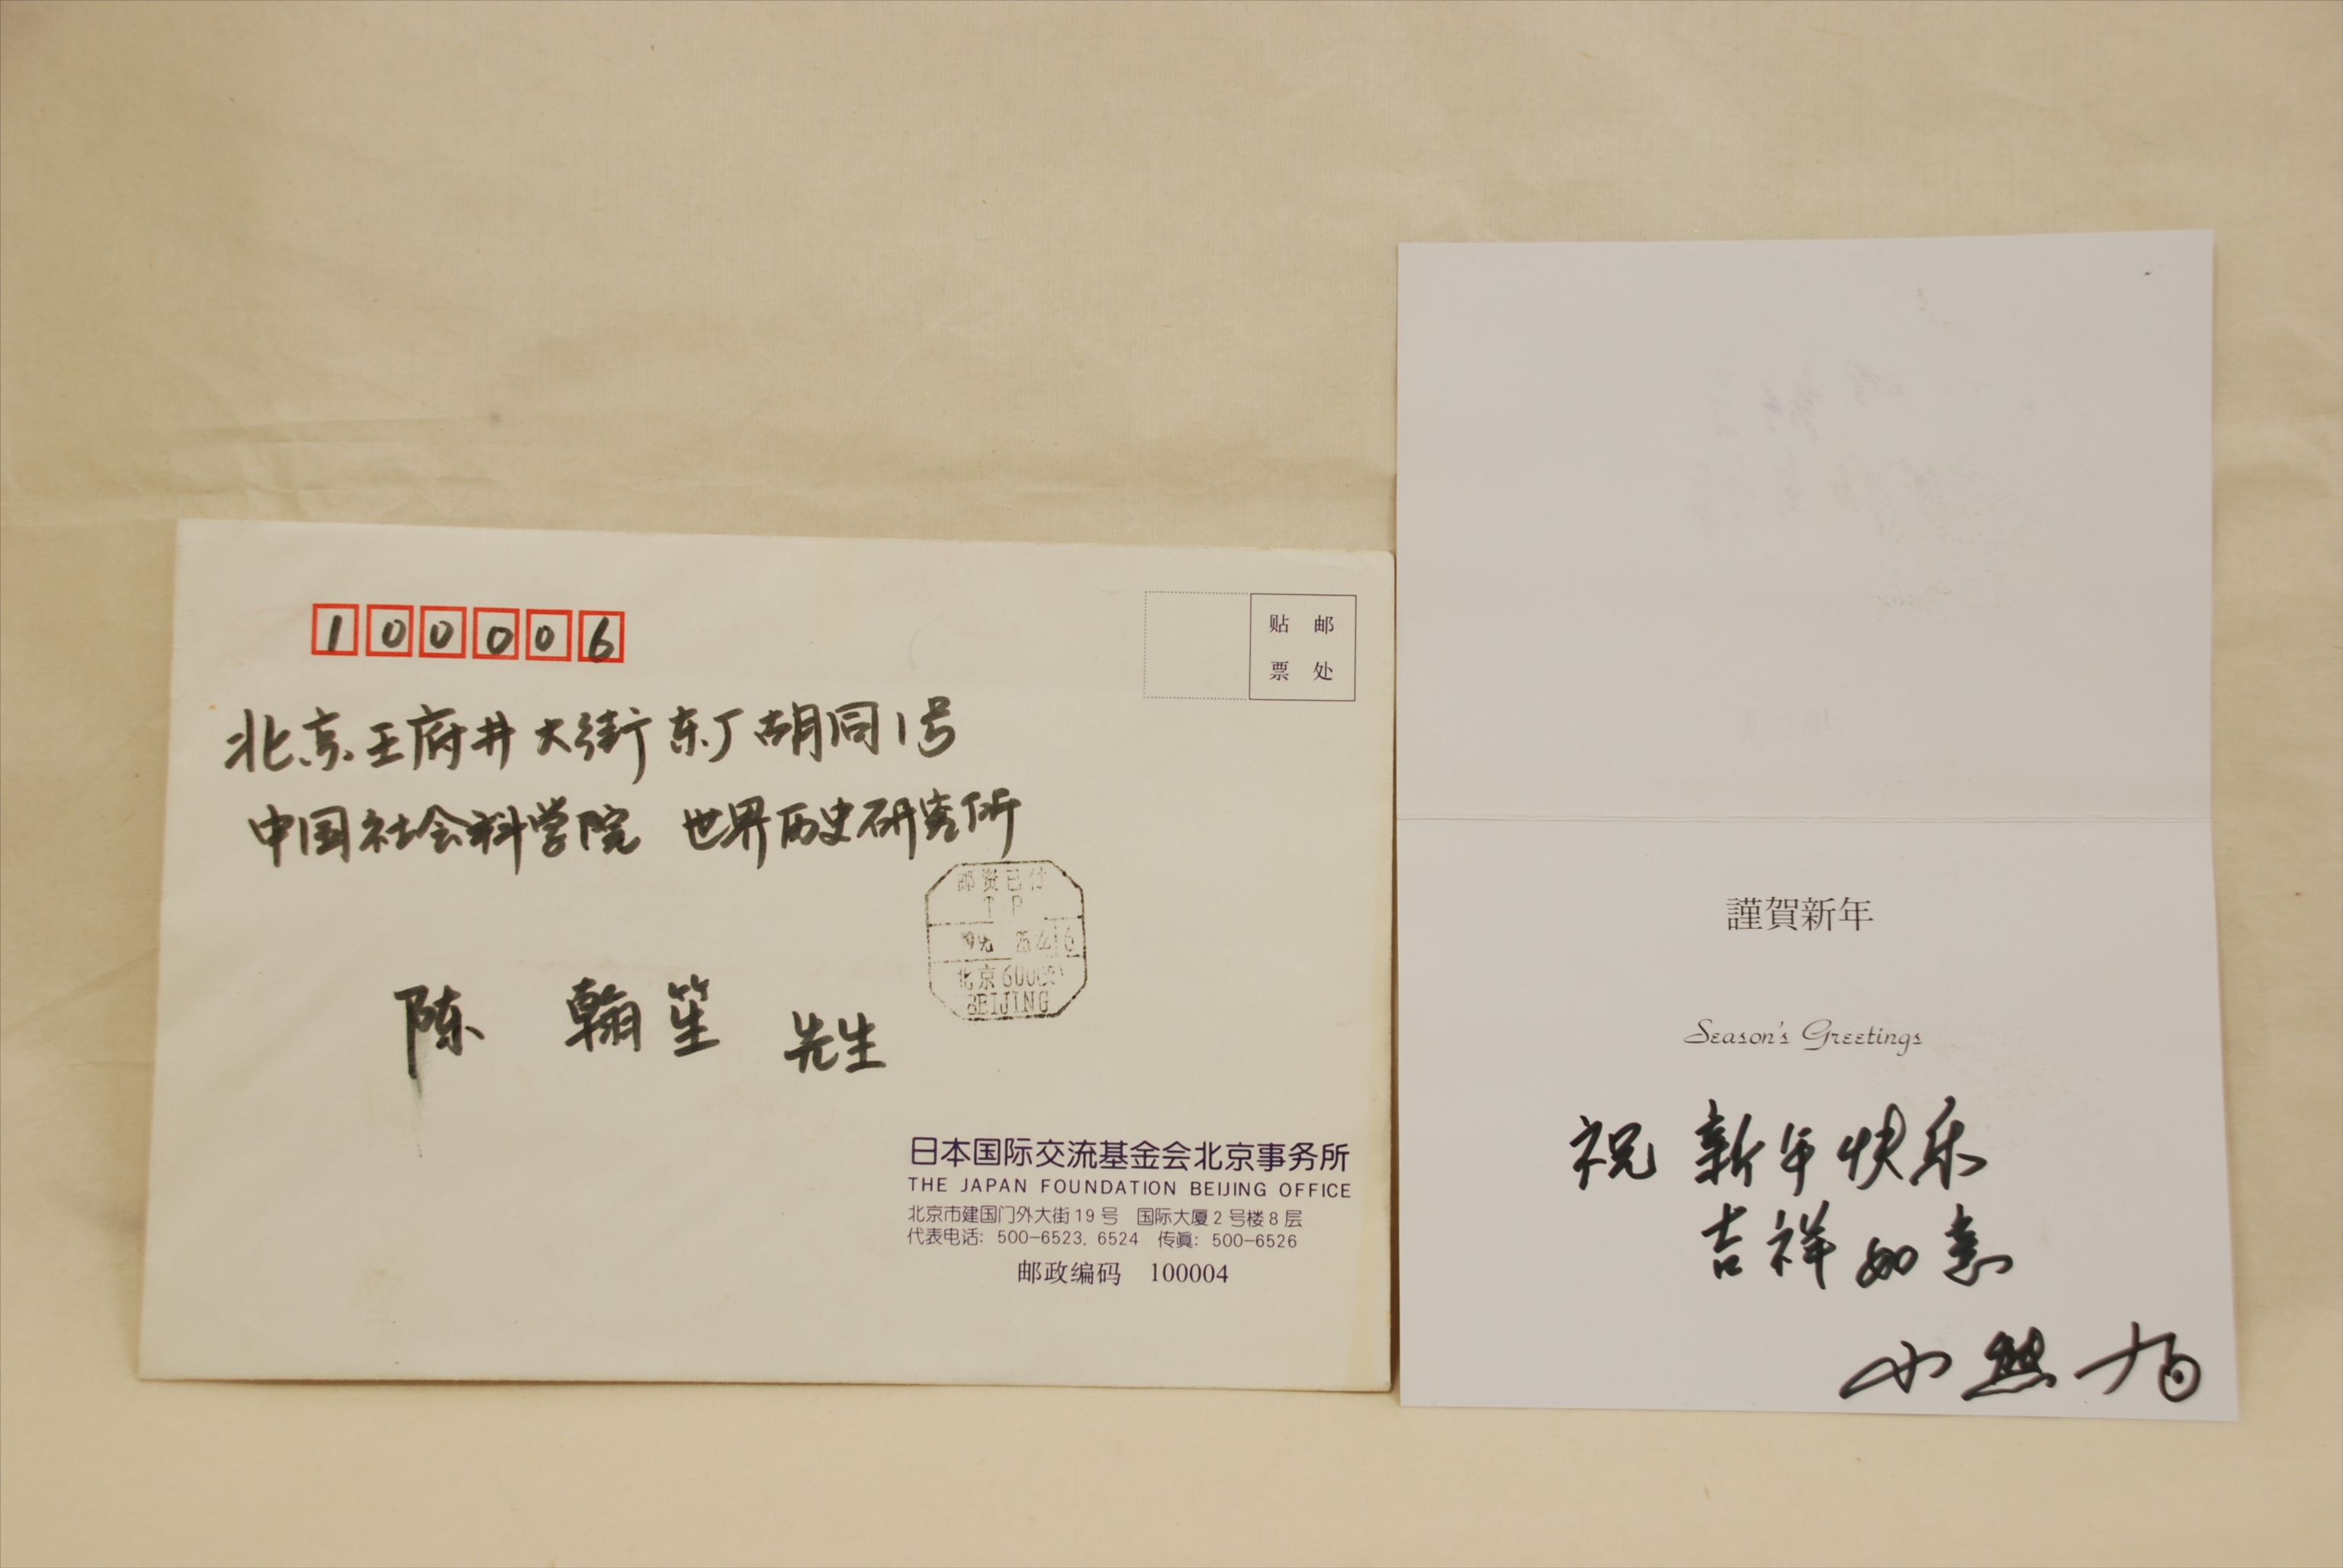 100006
贴 邮
票 处
北京王府井大街东厂胡同1号
中国社会科学院 世界历史研究所
邮资已付
T P
北京
BEIJING
陈 翰笙 先生
日本国际交流基金会北京事务所
THE JAPAN FOUNDATION BEIJING OFFICE
北京市建国门外大街19号 国际大厦2号楼8层
代表电话: 500-6523, 6524 传真: 500-6526
邮政编码 100004
謹賀新年
Season's Greetings
祝 新年快乐
吉祥如意
小熊旭